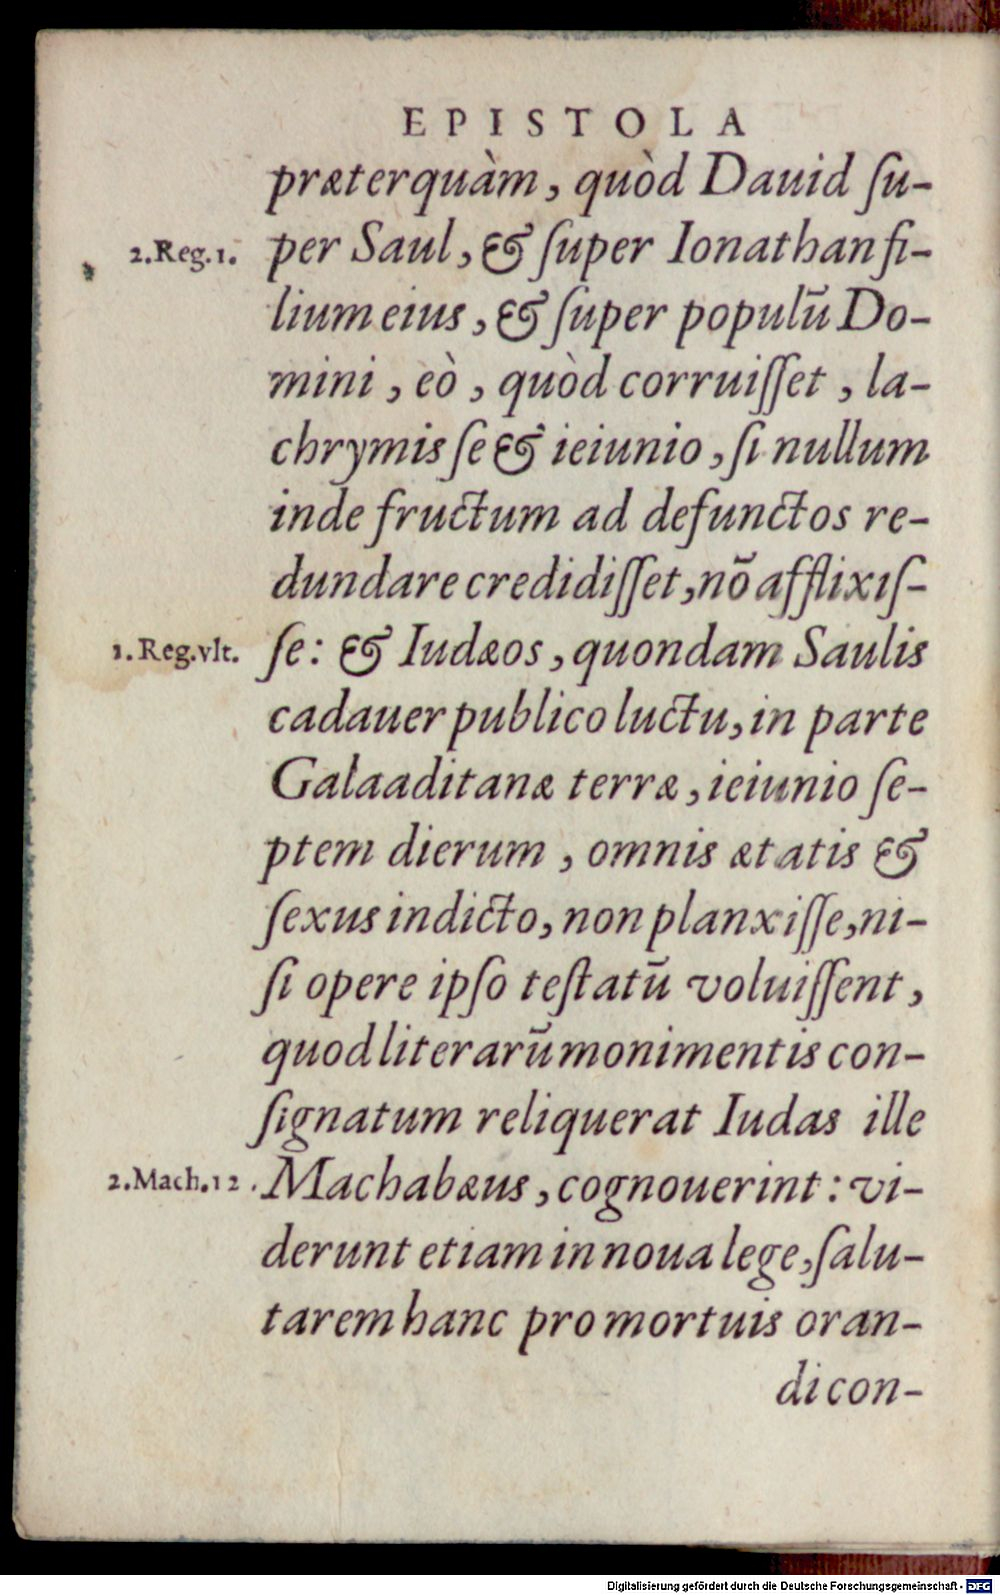 EPISTOLA
præterquàm, quòd Dauid ſu-
2.Reg.1. per Saul, & ſuper Ionathan fi-
lium eius, & ſuper populū Do-
mini, eò, quòd corruiſſet, la-
chrymis ſe & ieiunio, ſi nullum
inde fructum ad defunctos re-
dundare credidiſſet, nō afflixiſ-
1.Reg.vlt. ſe: & Iudæos, quondam Saulis
cadauer publico luctu, in parte
Galaaditanæ terræ, ieiunio ſe-
ptem dierum, omnis ætatis &
ſexus indicto, non planxiſſe, ni-
ſi opere ipſo teſtatū voluiſſent,
quod literarū monimentis con-
ſignatum reliquerat Iudas ille
2.Mach.12. Machabæus, cognouerint: vi-
derunt etiam in noua lege, ſalu-
tarem hanc pro mortuis oran-
di con-
Digitalisierung gefördert durch die Deutsche Forschungsgemeinschaft - DFG